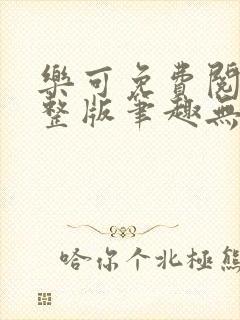 樂可免費閱
整版筆趣無
哈你个北極熊